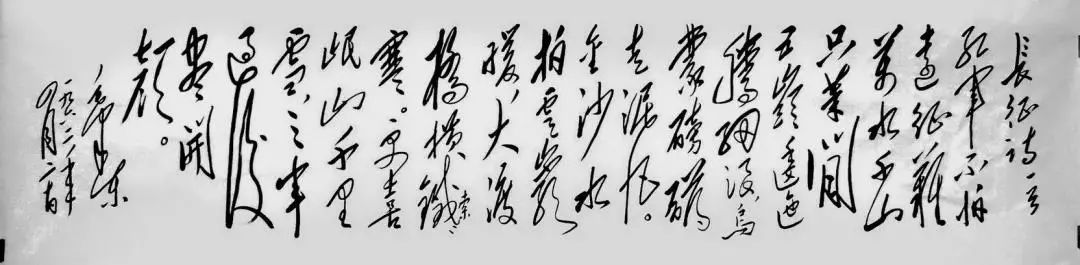 長征诗一首
紅軍不怕
遠征難
萬水千山
只等閒
五嶺逶迤
騰細浪烏
蒙磅礴
走泥丸。
金沙水
拍雲崖
暖,大渡
橋橫鐵索
寒。更喜
岷山千里
雪,三軍
過後
盡開
顏。
毛澤東
一九六二年
四月二十日